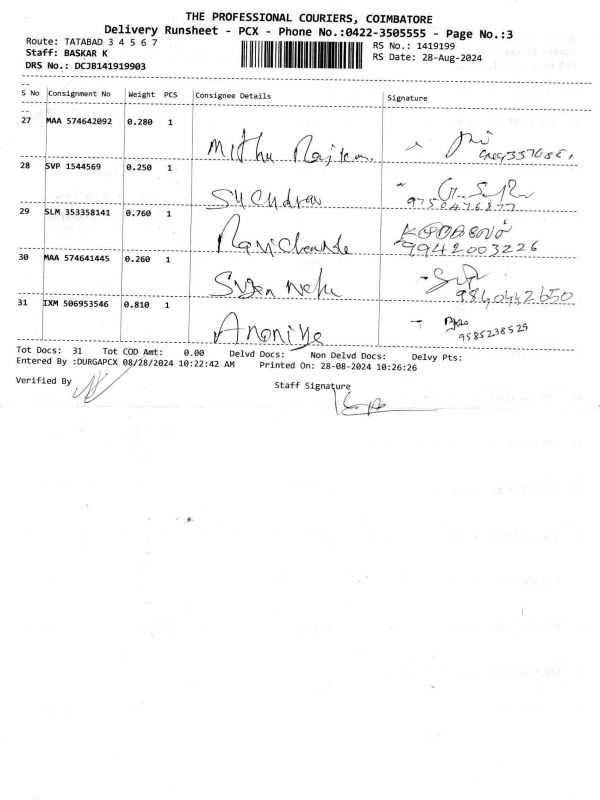 THE PROFESSIONAL COURIERS, COIMBATORE
Delivery Runsheet - PCX - Phone No.:0422-3505555 - Page No.:3
Route: TATABAD 3 4 5 6 7
Staff: BASKAR K
DRS No.: DCJB141919903
RS No.: 1419199
RS Date: 28-Aug-2024
S No Consignment No Weight PCS Consignee Details Signature
27 MAA 574642092 0.280 1
28 SVP 1544569 0.250 1
9750476877
29 SLM 353358141 0.760 1
9942003226
30 MAA 574641445 0.260 1
9840442650
31 IXM 506953546 0.810 1
9585238529
Tot Docs: 31 Tot COD Amt: 0.00 Delvd Docs: Non Delvd Docs: Delvy Pts:
Entered By :DURGAPCX 08/28/2024 10:22:42 AM Printed On: 28-08-2024 10:26:26
Verified By
Staff Signature